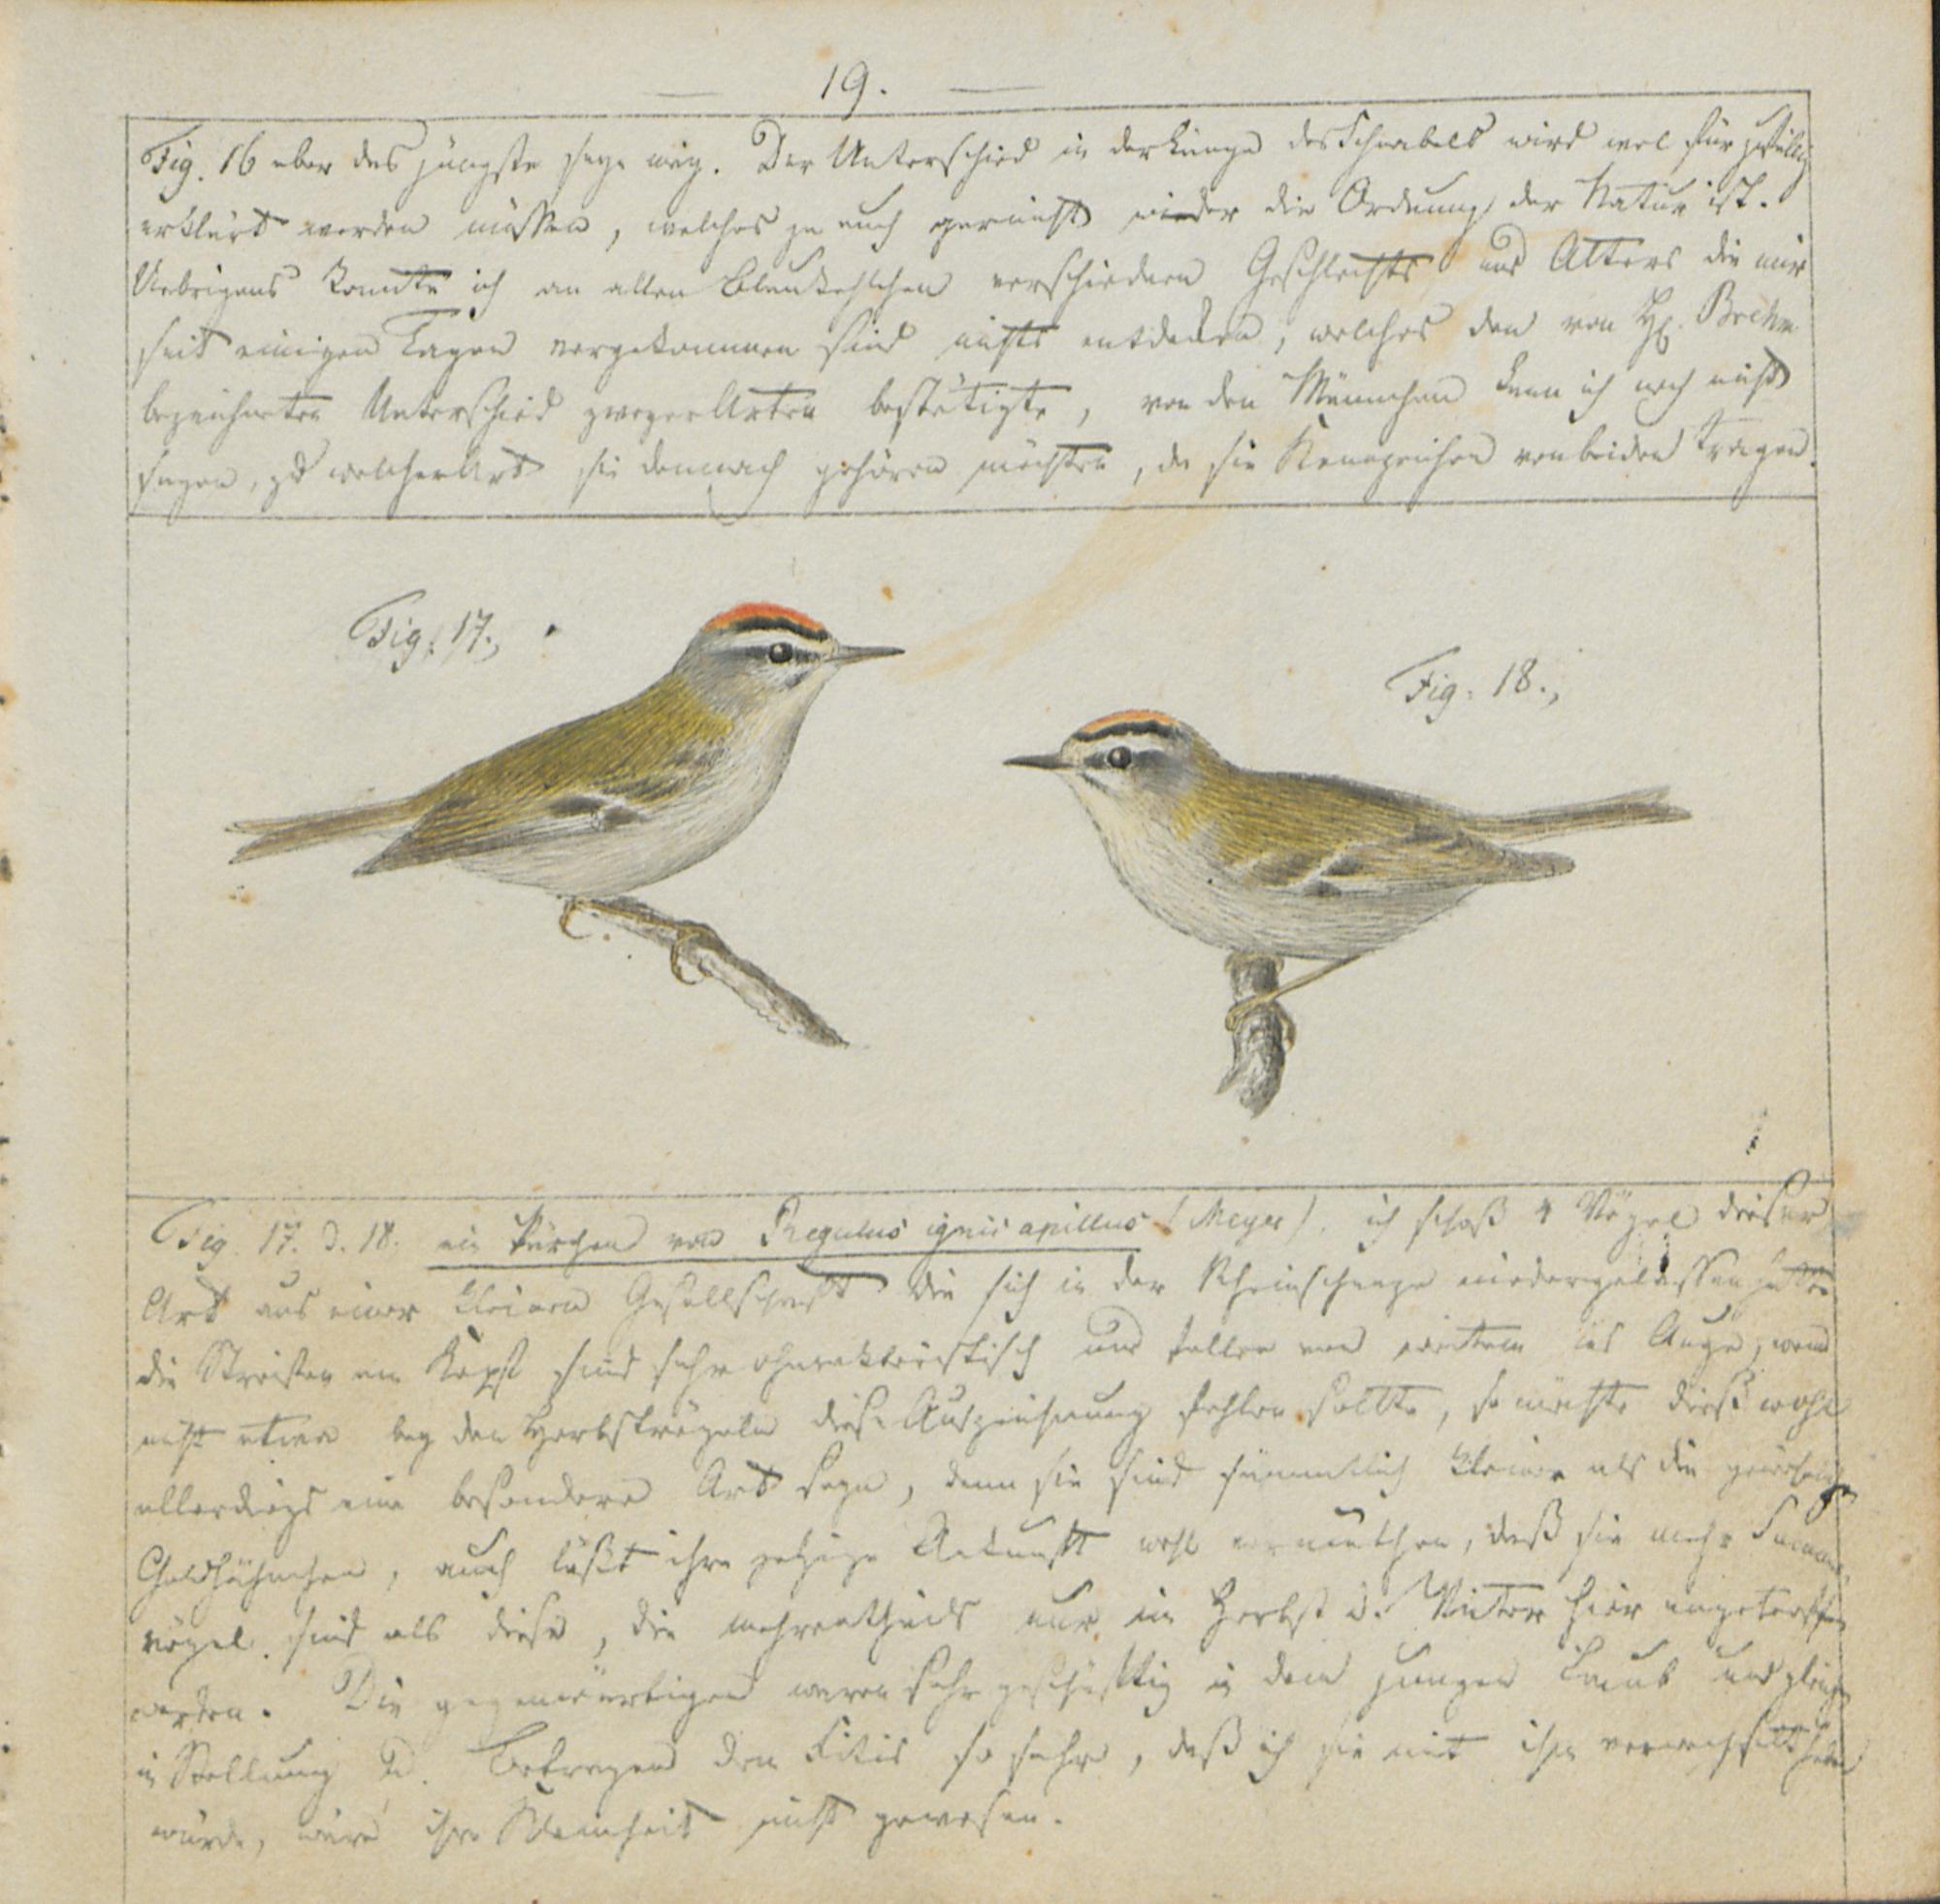 19.
Fig. 16 aber das jüngste seyn mag. Der Unterschied in der Länge des Schnabels wird wol für zufällig
erklärt werden müssen, welches ja auch gar nicht wieder die Ordnung der Natur ist.
Uebrigens konnte ich an allen Blaukehlchen verschiednen Geschlechts und Alters die mir
seit einigen Tagen vorgekommen sind nichts entdecken, welches den von H. Brehm
bezeichneten Unterschied zweyer Arten bestätigte, von den Männchen kann ich noch nicht
sagen, zu welcher Art sie demnach gehören möchten, da sie Kennzeichen von beiden tragen.
Fig. 17.,
Fig. 18.,
Fig. 17. u. 18. ein Pärchen von Regulus ignicapillus (Meyer). ich schoß 4 Vögel dieser
Art aus einer kleinen Gesellschaft die sich in der Rheinschanze niedergelassen hatte
die Streifen am Kopf sind sehr charakteristisch und fallen von weitem ins Auge, wenn
nicht etwa bey den Herbstvögeln diese Auszeichnung fehlen sollte, so möchte dieß wohl
allerdings eine besondere Art seyn, denn sie sind sämmtlich kleiner als die
Goldhähnchen, auch läßt ihre jetzige Ankunft wohl vermuthen, daß sie mehr Sommer
vögel sind als diese, die mehrentheils nur im Herbst u. Winter hier angetroffen
werden. Die gegenwärtigen waren sehr geschäftig in dem jungen Laub und glichen
in Stellung u. Betragen dem Fitis so sehr, daß ich sie mit ihm verwechselt haben
würde, wäre ihre Kleinheit nicht gewesen.